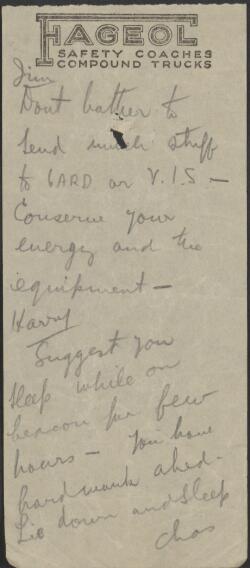 FAGEOL
SAFETY COACHES
COMPOUND TRUCKS
Jim
Dont bather to
send much stuff
to 6ARD or V.I.S —
Conserve your
energy and the
equipment —
Harry
Suggest you
sleep while on
beacon for few
hours — You have
hard work ahead.
Lie down and sleep
Chas